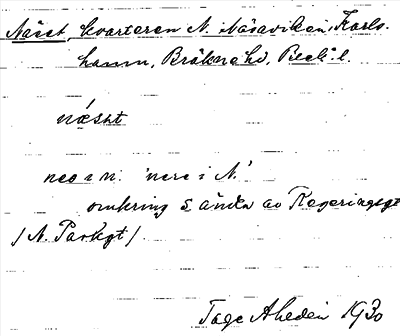 Näset, kvarteren N. Näsaviken, Karls-
hamn, Bräkne hd, Blek. l.
næsət
neə i n. 'nere i N.'
omkring S ändan av Regeringsgt
/N. Parkgt/.
Tage Ahedin 1930